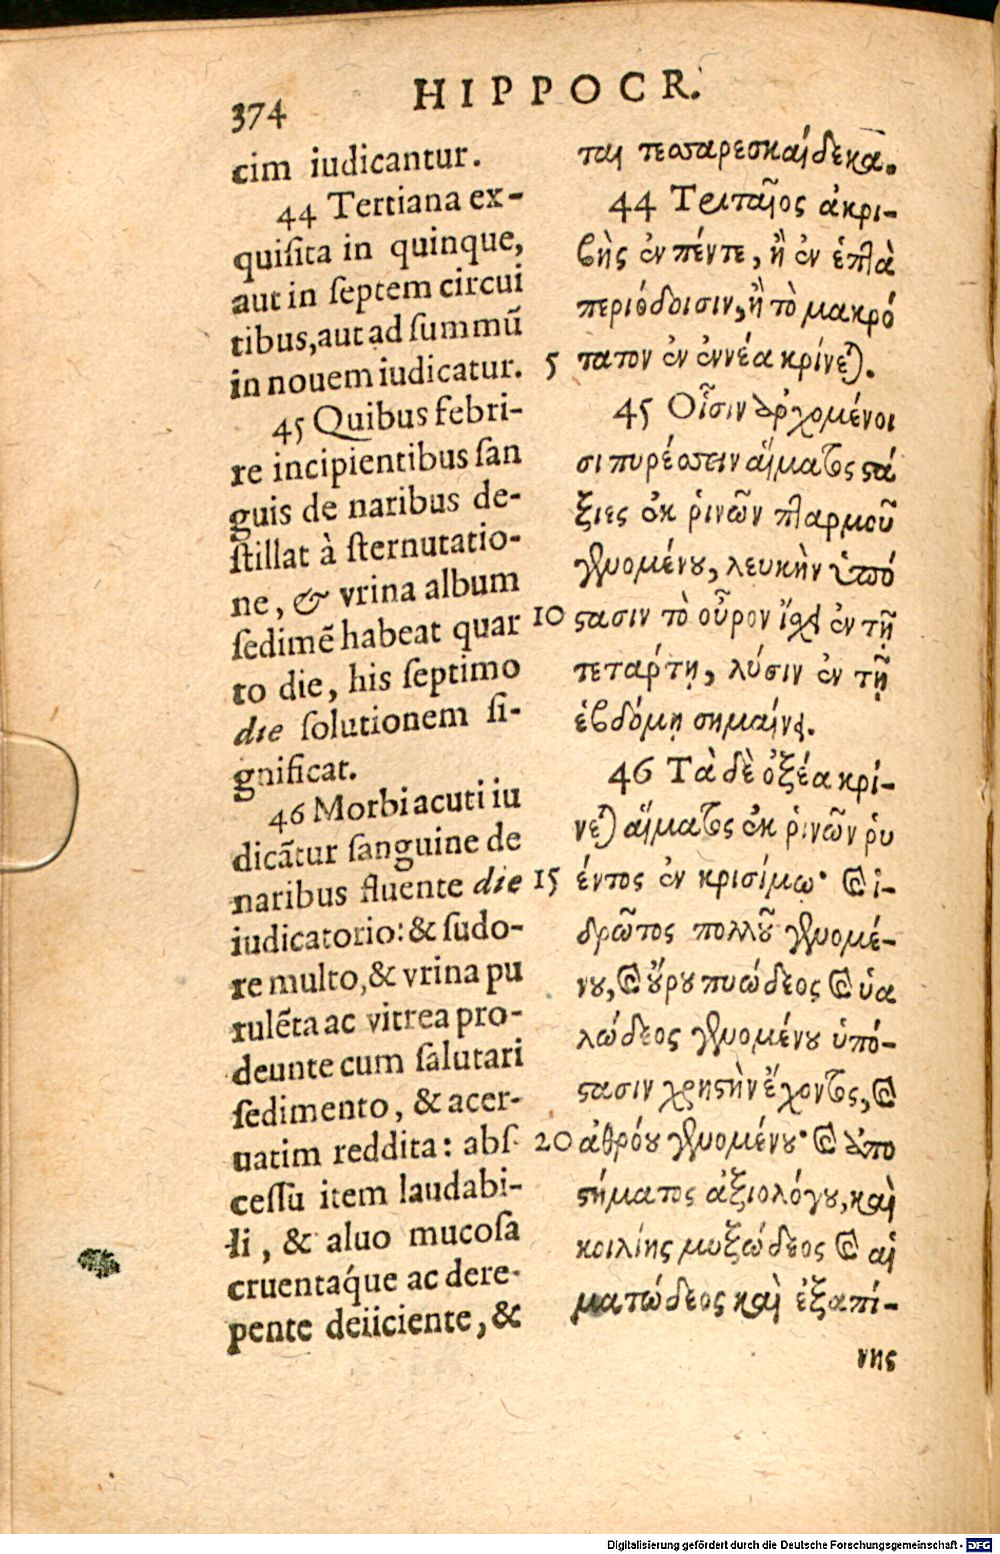 374
HIPPOCR.
cim iudicantur.
44 Tertiana ex-
quiſita in quinque,
aut in ſeptem circui
tibus, aut ad ſummũ
in nouem iudicatur.
45 Quibus febri-
re incipientibus ſan
guis de naribus de-
ſtillat à ſternutatio-
ne, & vrina album
ſedimẽ habeat quar
to die, his ſeptimo
die ſolutionem ſi-
gnificat.
46 Morbi acuti iu
dicãtur ſanguine de
naribus fluente die
iudicatorio: & ſudo-
re multo, & vrina pu
rulẽta ac vitrea pro-
deunte cum ſalutari
ſedimento, & acer-
uatim reddita: abſ-
ceſſu item laudabi-
li, & aluo mucoſa
cruentaq́ue ac dere-
pente deiiciente, &
ται τεσσαρεσκαίδεκα.
44 Τριταῖος ἀκρι-
βὴς ἐν πέντε, ἢ ἐν ἑπτὰ
περιόδοισιν, ἢ τὸ μακρό
5 τατον ἐν ἐννέα κρίνεται.
45 Οἷσιν ἀρχομένοι
σι πυρέσσειν αἵματος στά
ξιες ἐκ ῥινῶν πταρμοῦ
γενομένου, λευκὴν ὑπό
10 στασιν τὸ οὖρον ἴσχει ἐν τῇ
τετάρτῃ, λύσιν ἐν τῇ
ἑβδόμῃ σημαίνει.
46 Τὰ δὲ ὀξέα κρί-
νεται αἵματος ἐκ ῥινῶν ῥυ
15 έντος ἐν κρισίμῳ· καὶ ἱ-
δρῶτος πολλοῦ γενομέ-
νου, καὶ οὔρου πυώδεος καὶ ὑα
λώδεος γενομένου ὑπό-
στασιν χρηστὴν ἔχοντος, καὶ
20 ἀθρόου γενομένου· καὶ ἀπο
στήματος ἀξιολόγου, καὶ
κοιλίης μυξώδεος καὶ αἱ
ματώδεος καὶ ἐξαπί-
νης
Digitalisierung gefördert durch die Deutsche Forschungsgemeinschaft - DFG